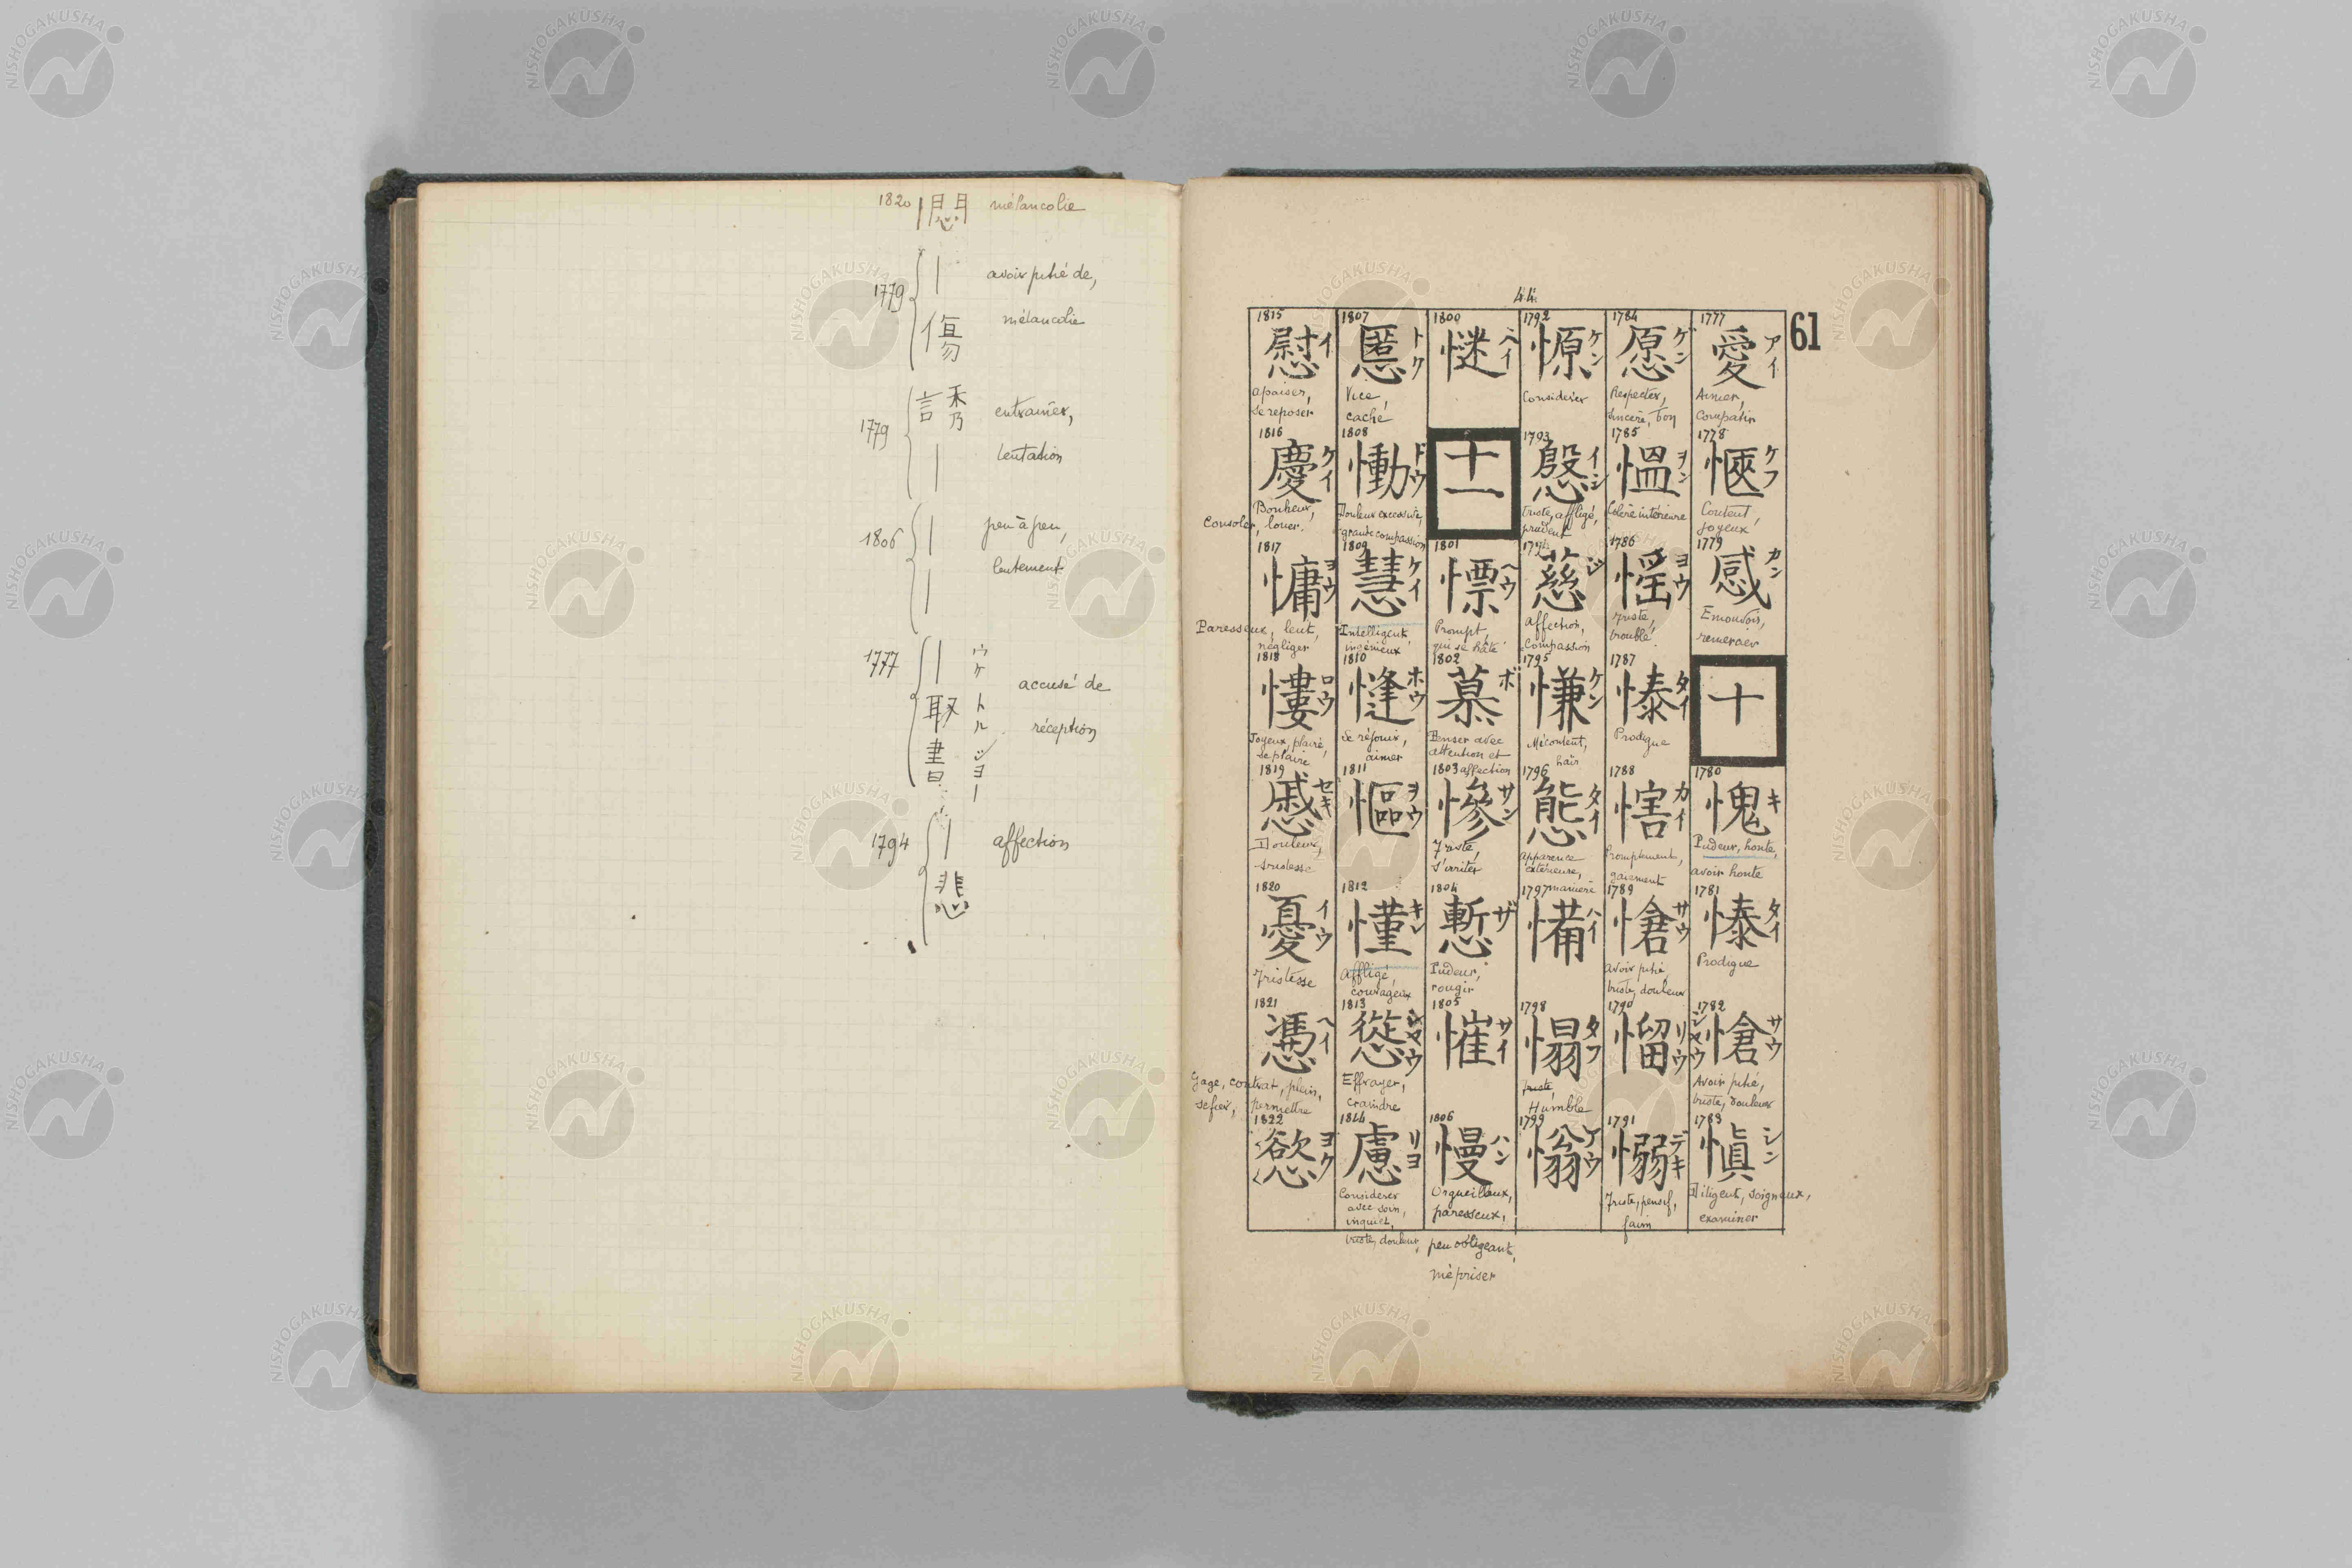 1820 | 悶 mélancolie
1779 | avoir pitié de,
傷 mélancolie
1779 誘 entraîner,
| tentation
1806 | peu à peu,
| lentement
1777 | ウケトルショー accusé de
取書 réception
1794 | affection
悲
44
61
1777 愛 アイ
Aimer,
Compatir
1778 愜 ケフ
Content,
joyeux
1779 感 カン
Emouvoir,
remercier
十
1780 愧 キ
Pudeur, honte,
avoir honte
1781 㥭 タイ
Prodigue
1782 愴 サウ シヤウ
Avoir pitié,
triste, douleur
1783 愼 シン
Diligent, soigneux,
examiner
1784 愿 ケン
Respecter,
sincère, bon
1785 慍 ヲン
Colère intérieure
1786 愮 ヨウ
Triste,
troublé
1787 タイ
Prodigue
1788 愘 カイ
Promptement,
gaiement
1789 愴 サウ
avoir pitié,
triste, douleur
1790 慉 リウ
1791 愵 デキ
Triste, pensif,
faim
1792 愿 ケン
Considérer
1793 慇 イン
triste, affligé,
prudent
1794 慈 ジ
affection,
Compassion
1795 慊 ケン
Mécontent,
haïr
1796 態 タイ
apparence
extérieure,
manière
1797 備 ハイ
1798 㒓 タフ
triste,
Humble
1799 慃 アウ
1800 ヘイ
十一
1801 慓 ヘウ
Prompt,
qui se hâte
1802 慕 ボ
Penser avec
attention et
affection
1803 慘 サン
Triste,
s'irriter
1804 慙 ザ
Pudeur,
rougir
1805 慛 サイ
1806 慢 ハン
Orgueilleux,
paresseux,
peu obligeant,
mépriser
1807 慝 トク
Vice,
caché
1808 慟 ドウ
Douleur excessive,
grande compassion
1809 慧 ケイ
Intelligent,
ingénieux
1810 ホウ
Se réjouir,
aimer
1811 慪 ヲウ
1812 慬 キン
affligé,
courageux
1813 慫 シヤウ
Effrayer,
craindre
1844 慮 リヨ
Considerer
avec soin,
inquiet,
triste, douleur,
1815 慰 イ
apaiser,
se reposer
1816 慶 ケイ
Bonheur,
Consoler, louer.
1817 慵 ヨウ
Paresseux, lent,
négliger
1818 慺 ロウ
Joyeux, plaire,
se plaire
1819 慼 セキ
Douleur,
tristesse
1820 憂 イウ
Tristesse
1821 憑 ヘイ
Gage, contrat, plein,
se fier, permettre
1822 慾 ヨク